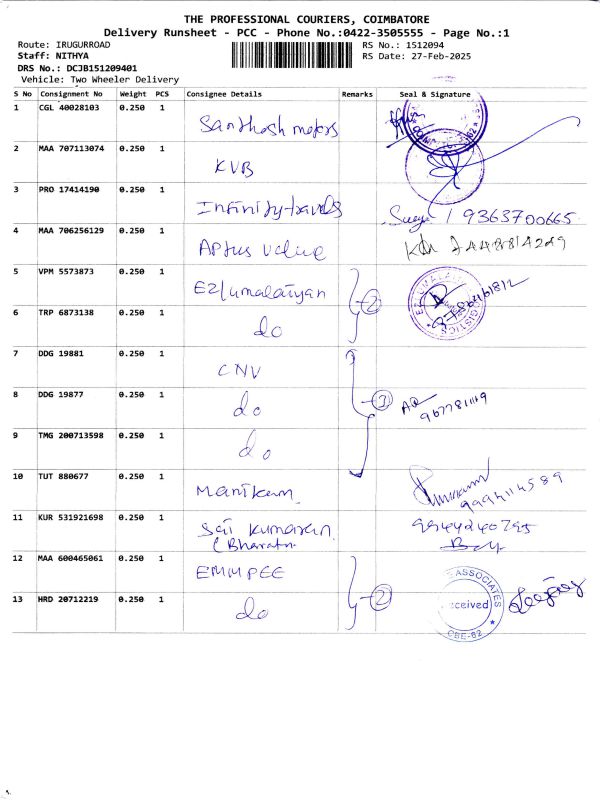 THE PROFESSIONAL COURIERS, COIMBATORE
Delivery Runsheet - PCC - Phone No.:0422-3505555 - Page No.:1
Route: IRUGURROAD RS No.: 1512094
Staff: NITHYA RS Date: 27-Feb-2025
DRS No.: DCJB151209401
Vehicle: Two Wheeler Delivery
S No Consignment No Weight PCS Consignee Details Remarks Seal & Signature
1 CGL 40028103 0.250 1 Santhosh motors
2 MAA 707113074 0.250 1 KVB
3 PRO 17414190 0.250 1 Infinity travels 9363700665
4 MAA 706256129 0.250 1 Aptus value
5 VPM 5573873 0.250 1 EZ/umalaiyan 2
6 TRP 6873138 0.250 1 do
7 DDG 19881 0.250 1 CNV
8 DDG 19877 0.250 1 do 3
9 TMG 200713598 0.250 1 do
10 TUT 880677 0.250 1 Manikam
11 KUR 531921698 0.250 1 Sai Kumaran
(Bharath
12 MAA 600465061 0.250 1 EMMPEE 2
ASSOCIATES
13 HRD 20712219 0.250 1 do
CBE-62